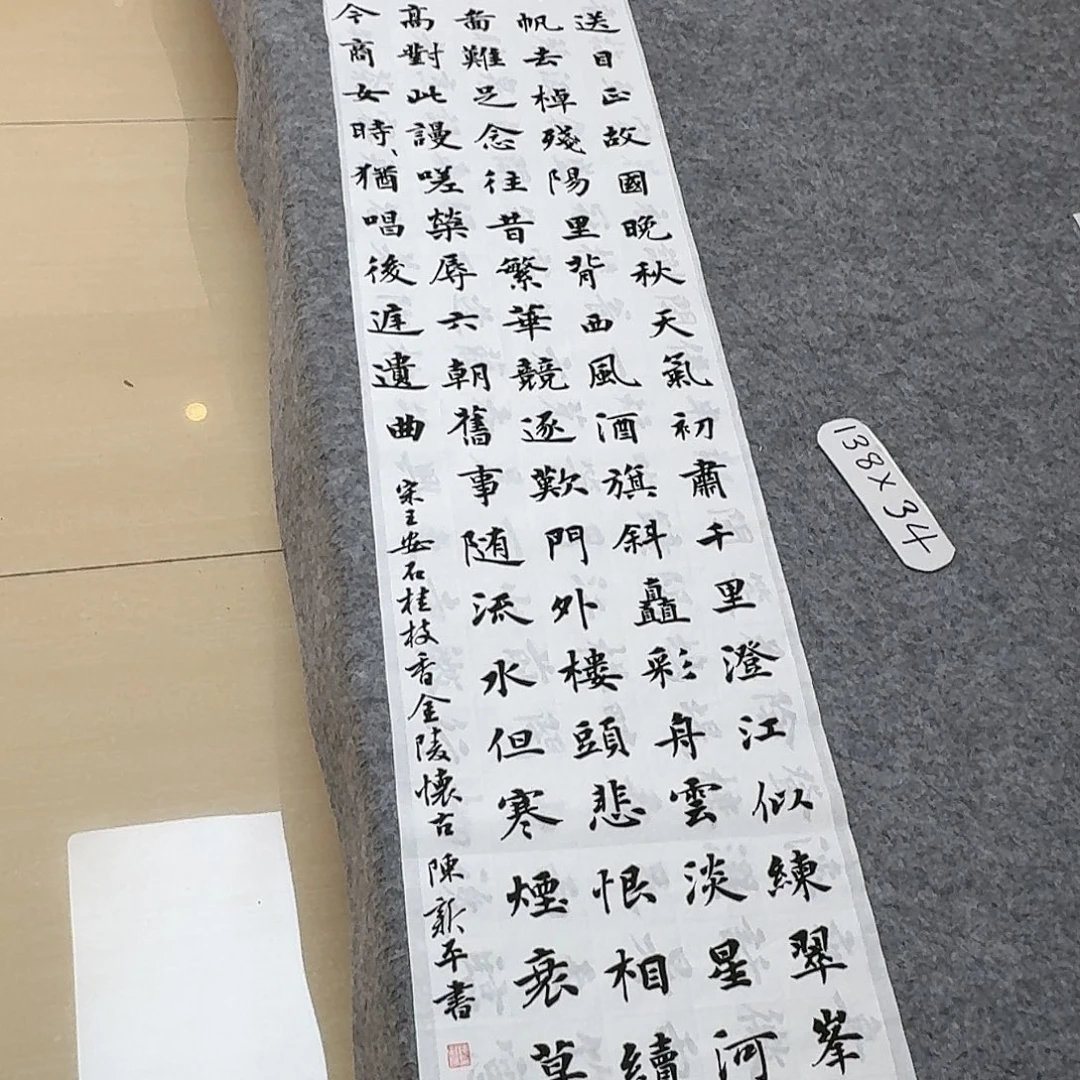 送目正故國晚秋天氣初肅千里澄江似練翠峯
帆去棹殘陽里背西風酒旗斜矗彩舟雲淡星河
啚難足念往昔繁華競逐歎門外樓頭悲恨相續
高對此謾嗟榮辱六朝舊事随流水但寒煙衰草
今商女時、猶唱後庭遺曲
宋王安石桂枝香金陵懷古 陳新平書
138X34